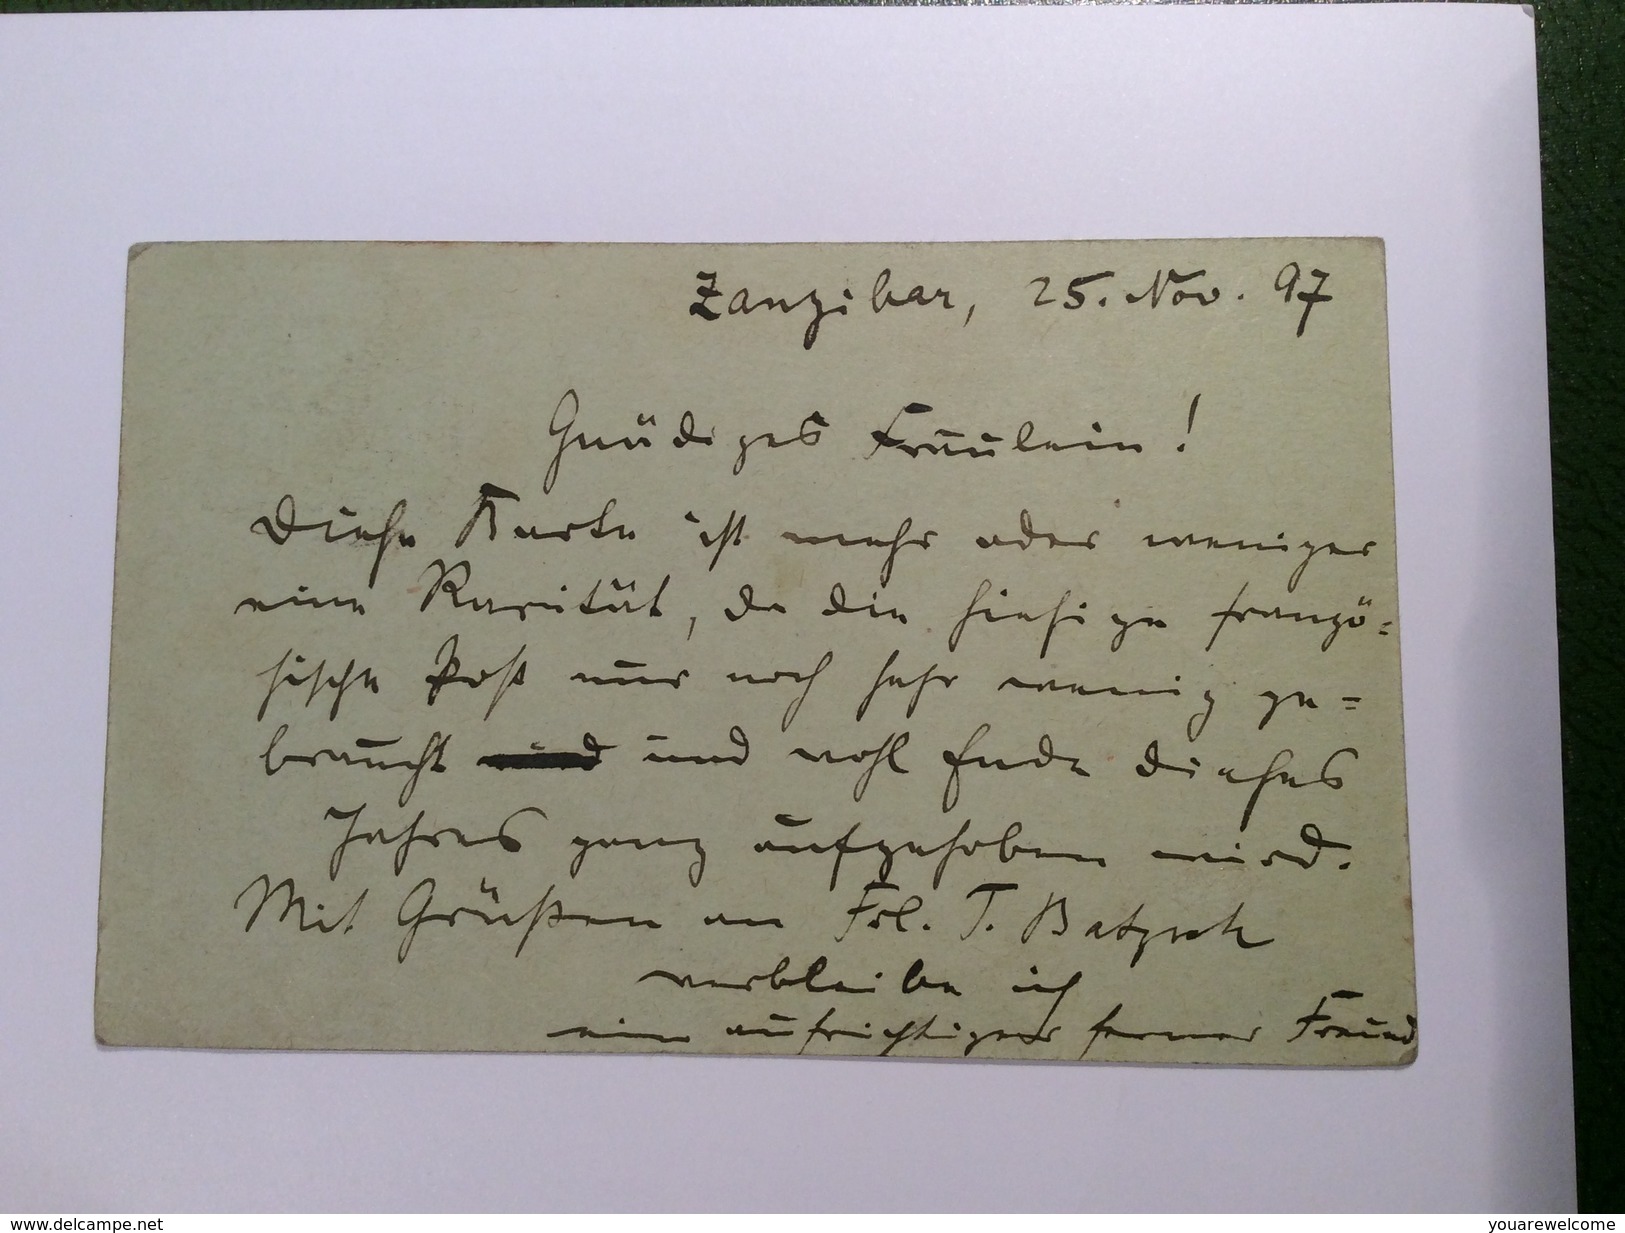 Zanzibar, 25. Nov. 97
Gnädiges Fräulein!
Diese Karte ist mehr oder weniger
eine Rarität, da die hiesige franzö=
sische Post nur noch sehr wenig ge=
braucht und wohl Ende dieses
Jahres ganz aufgehoben wird.
Mit Grüßen an Frl. T.
verbleibe ich
ein aufrichtiger ferner Freund
www.delcampe.net
youarewelcome